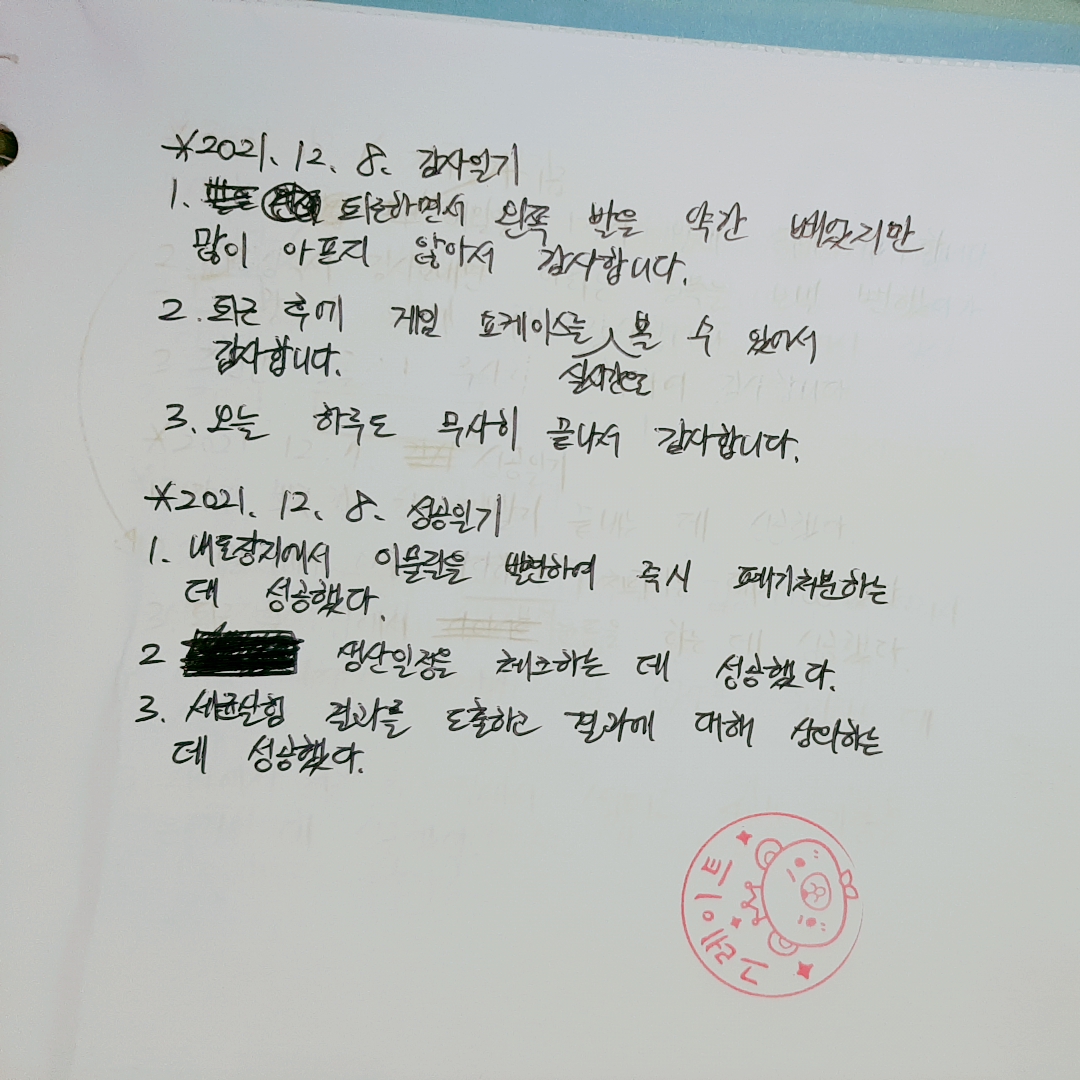 *2021. 12. 8. 감사일기
1. 퇴근하면서 왼쪽 발을 약간 베었지만
많이 아프지 않아서 감사합니다.
2. 퇴근 후에 게임 쇼케이스를 실시간으로 볼 수 있어서
감사합니다.
3. 오늘 하루도 무사히 끝나서 감사합니다.
*2021. 12. 8. 성공일기
1. 내포장지에서 이물질을 발견하여 즉시 폐기처분하는
데 성공했다.
2 생산일정을 체크하는 데 성공했다.
3. 세균실험 결과를 도출하고 결과에 대해 상의하는
데 성공했다.
그레이트